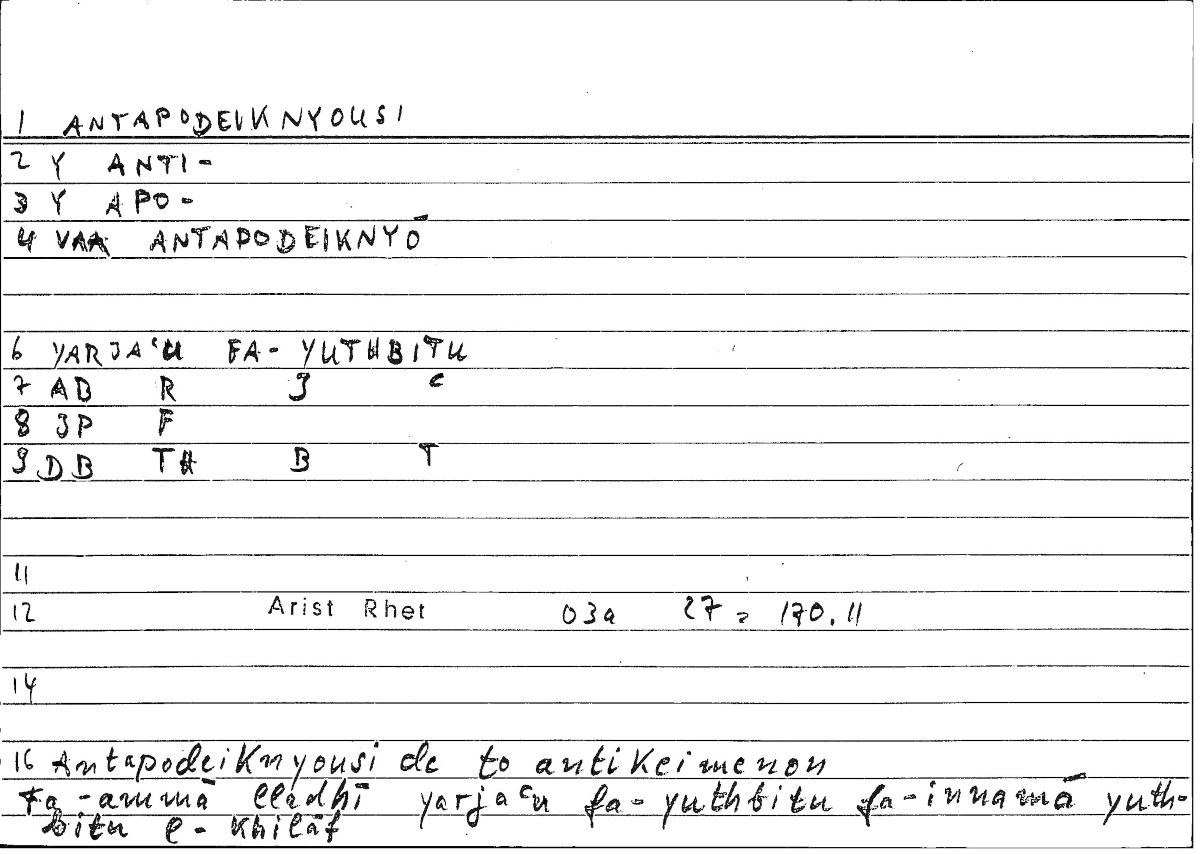 1 ANTAPODEIKNYOUSI
2 Y ANTI-
3 Y APO-
4 VAA ANTAPODEIKNYŌ
6 YARJAʿU FA- YUTHBITU
7 AB R J ʿ
8 JP F
9 DB TH B T
11
12 Arist Rhet 03a 27 = 170.11
14
16 Antapodeiknyousi de to antikeimenon
Fa-ammā lladhī yarjaʿu fa-yuthbitu fa-innamā yuth-
bitu l-khilāf